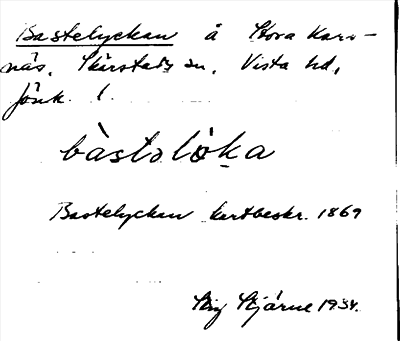 Bastelyckan å Stora Kars-
näs, Skärstads sn, Vista hd,
Jönk. l.
bàstolò̱ka
Bastelyckan kartbeskr. 1869
Stig Stjärne 1934.